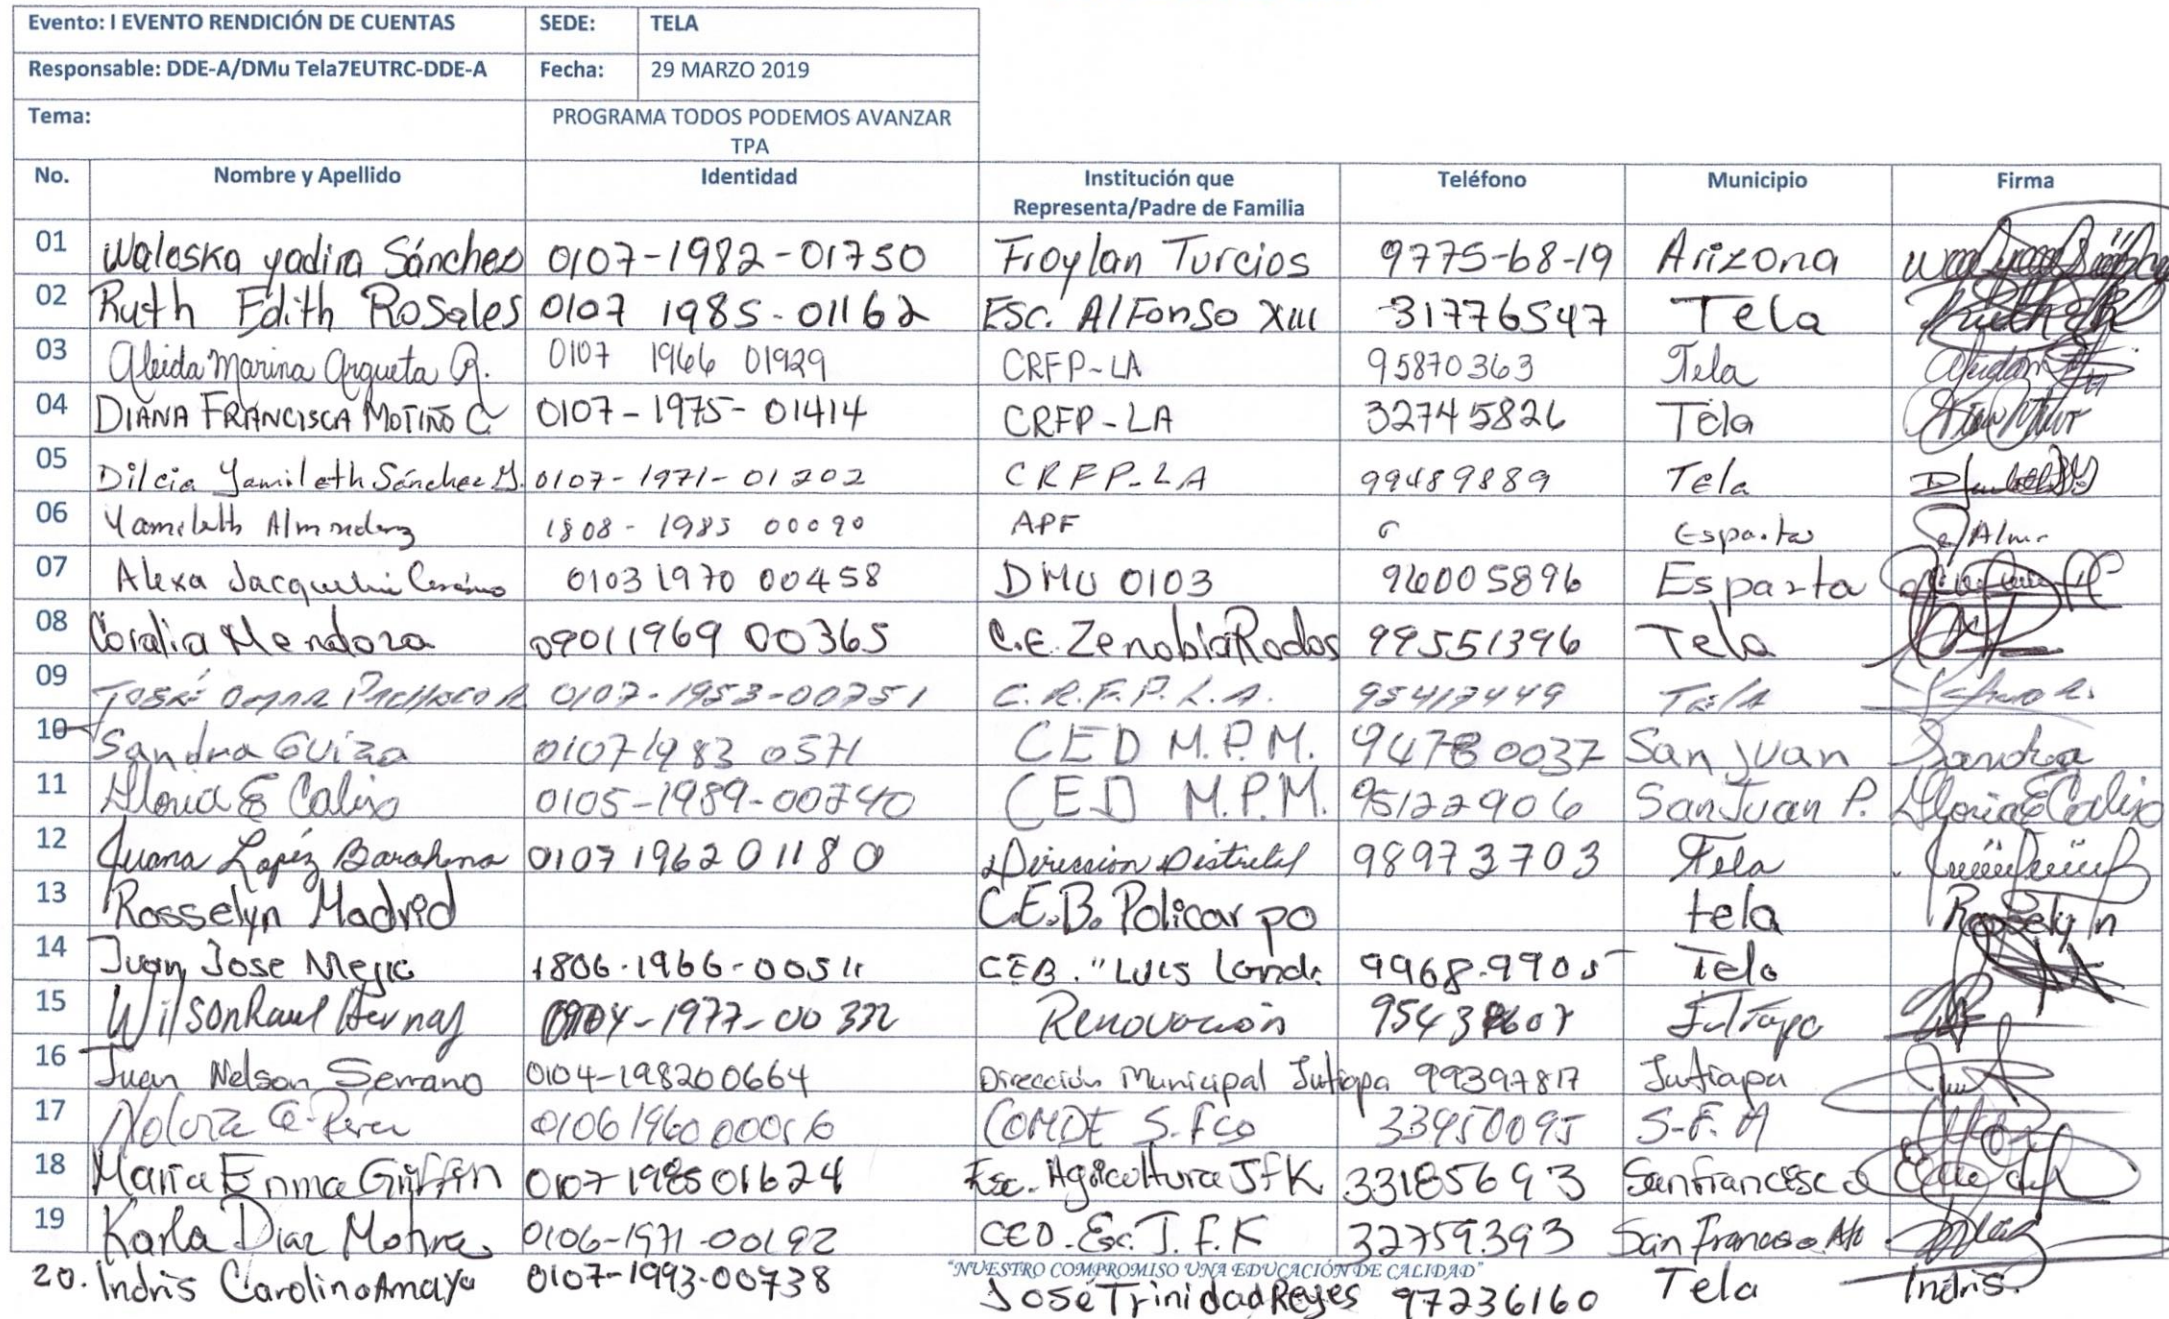 Evento: I EVENTO RENDICIÓN DE CUENTAS SEDE: TELA
Responsable: DDE-A/DMu Tela7EUTRC-DDE-A Fecha: 29 MARZO 2019
Tema: PROGRAMA TODOS PODEMOS AVANZAR
TPA
No. Nombre y Apellido Identidad Institución que Teléfono Municipio Firma
Representa/Padre de Familia
01 Waleska yadira Sánchez 0107-1982-01750 Froylan Turcios 9775-68-19 Arizona
02 Ruth Edith Rosales 0107 1985-01162 Esc. Alfonso XIII 31776547 Tela
03 Aleida Marina Argueta R. 0107 1966 01929 CRFP-LA 95870363 Tela
04 DIANA FRANCISCA MOTIÑO C 0107-1975-01414 CRFP-LA 32745826 Tela
05 Dilcia Yamileth Sánchez M. 0107-1971-01202 CRFP-LA 99489889 Tela
06 Yamileth 1808-1985 00090 APF Esparta
07 Alexa Jacqueline 0103 1970 00458 DMU 0103 96005896 Esparta
08 Coralia Mendoza 09011969 00365 C.E. Zenobia Rodas 99551396 Tela
09 JOSÉ OMAR PACHECO R 0107-1953-00751 C.R.F.P.L.A. 95417449 Tela
10 Sandra Guiza 01071983 0571 CED M.P.M. 94780037 San Juan Sandra
11 Gloria E Calix 0105-1989-00740 CED M.P.M. 95122906 San Juan P. Gloria E Calix
12 Juana López Barahona 0107 1962 01180 Dirección Distrital 98973703 Tela
13 Rosselyn Madrid C.E.B. Policarpo tela Rosselyn
14 Juan Jose Mejia 1806-1966-00511 CEB. "Luis Land. 9968-9905 Tela
15 Wilson Raul -1977-00332 Renovación Jutiapa
16 Juan Nelson Serrano 0104-198200664 Dirección Municipal Jutiapa 99397817 Jutiapa
17 COMDE S. Fco 33950095 S-F. A
18 Maria Enma Griffin 0107-198501624 Esc. Agricultura JFK 33185693 San francisco
19 Karla Diaz 0106-1971-00192 CED. Esc. J.F.K 32759393
"NUESTRO COMPROMISO UNA EDUCACIÓN DE CALIDAD"
20. Indris Carolina Amaya 0107-1993-00738 José Trinidad Reyes 97236160 Tela Indris.